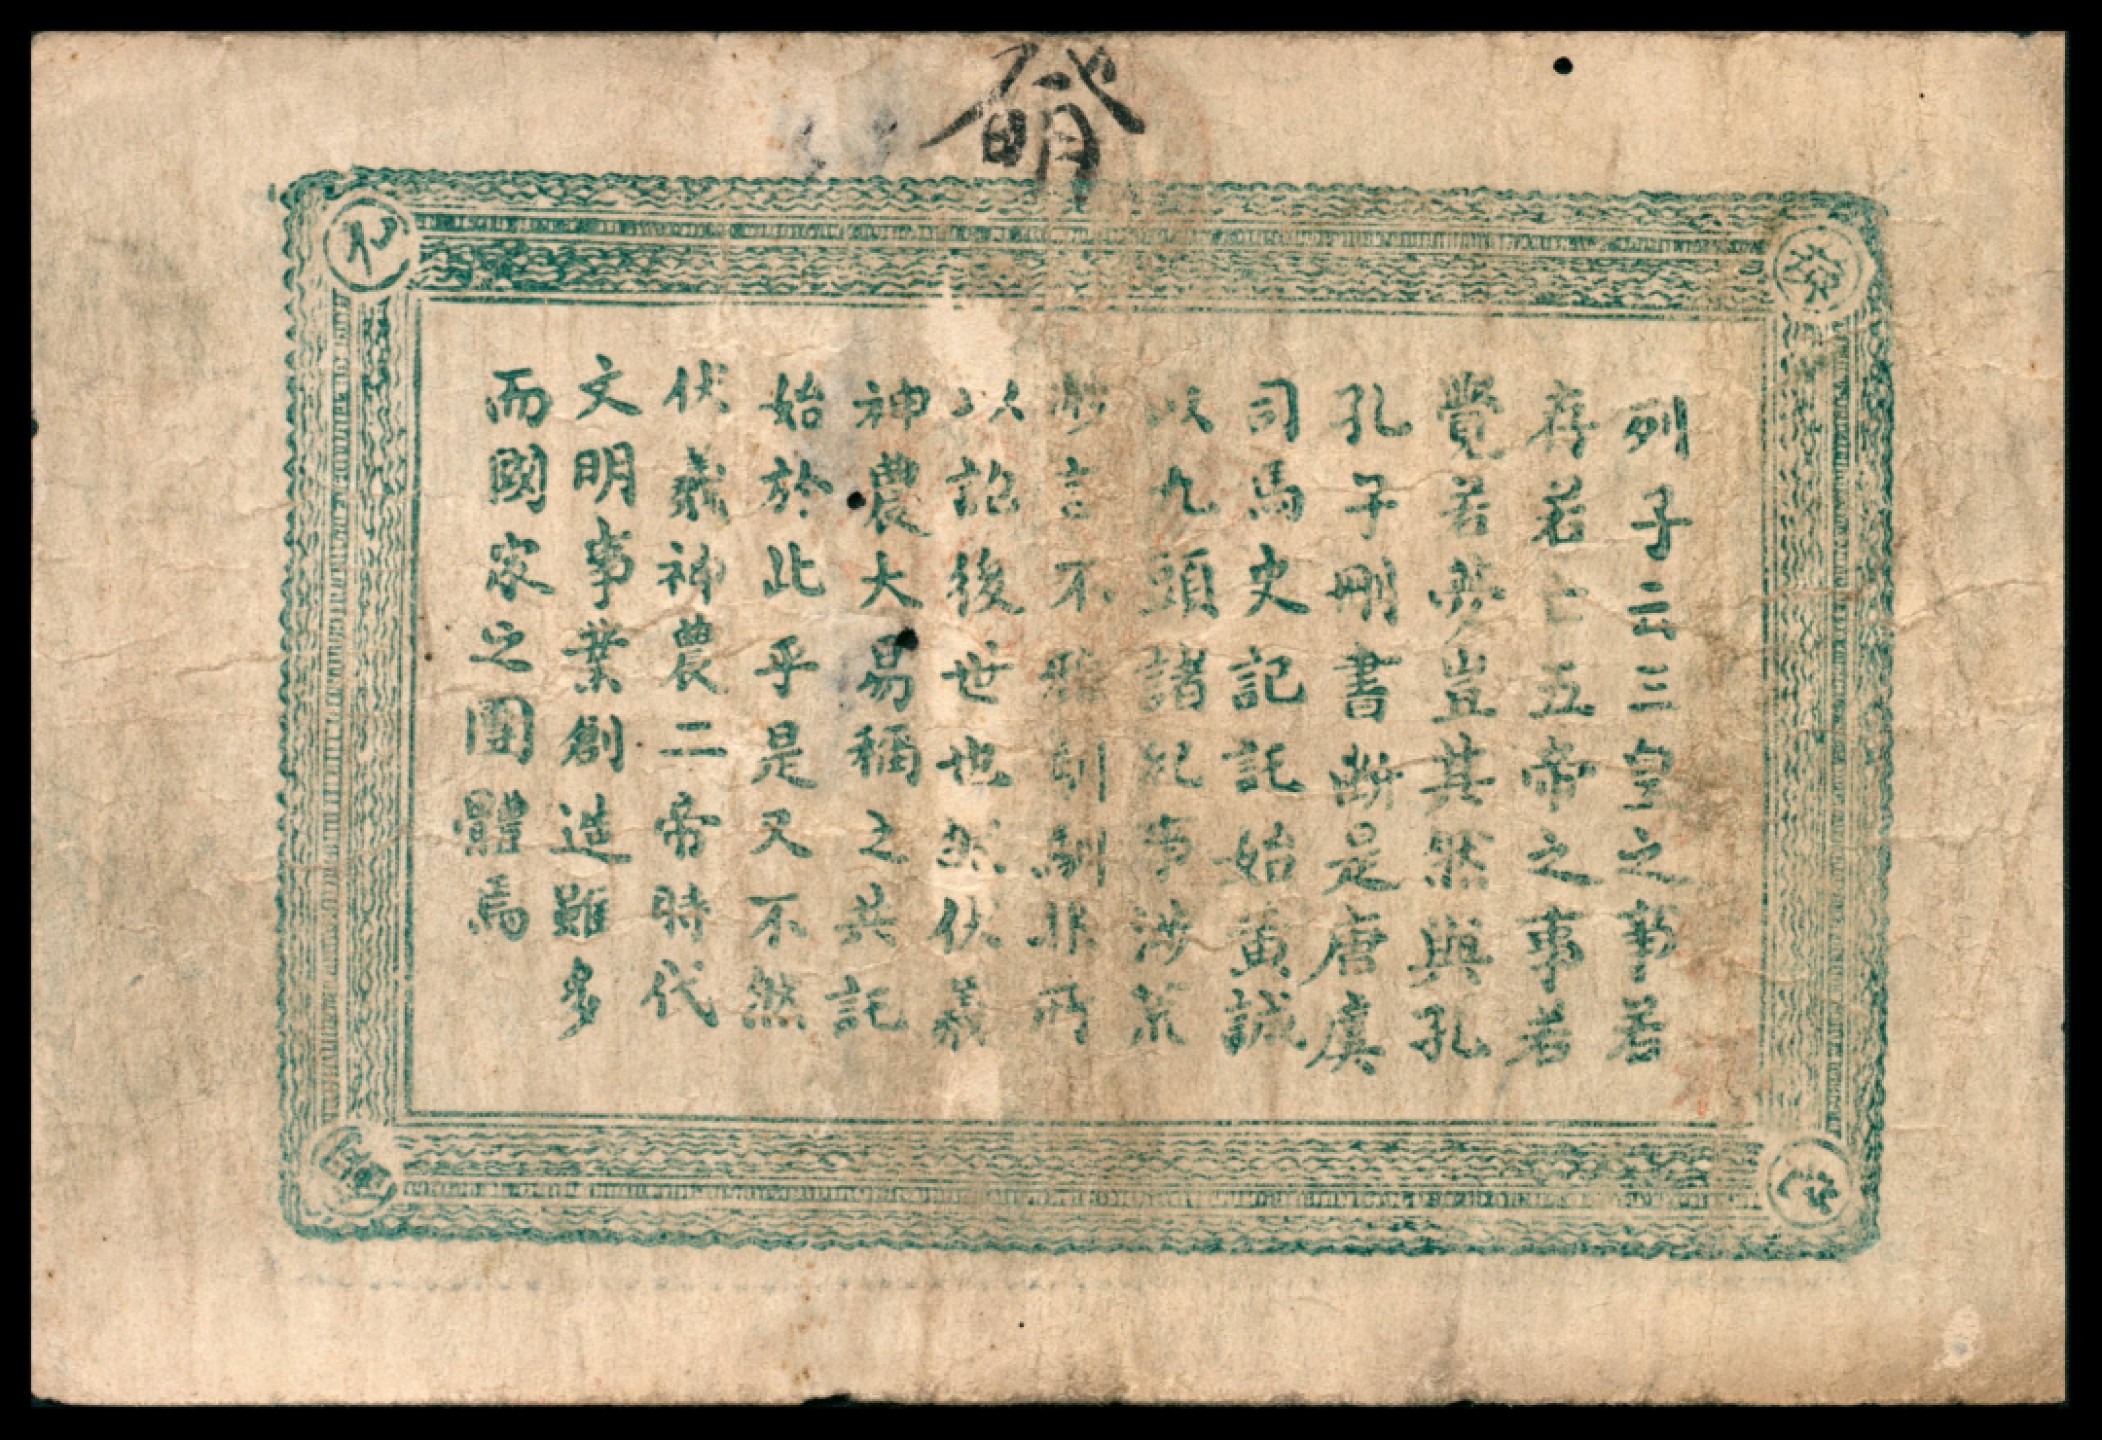 列子云三皇之事若
存若亡五帝之事若
覺若夢豈其然與孔
孔子刪書斷是唐虞
司馬史記託始黃誠
以九頭諸紀事涉荒
渺言不雅馴馴非所
以詔後世也然伏羲
神農大易稱之其託
始於此乎是又不然
伏羲神農二帝時代
文明事業創造雖多
而國家之團體焉